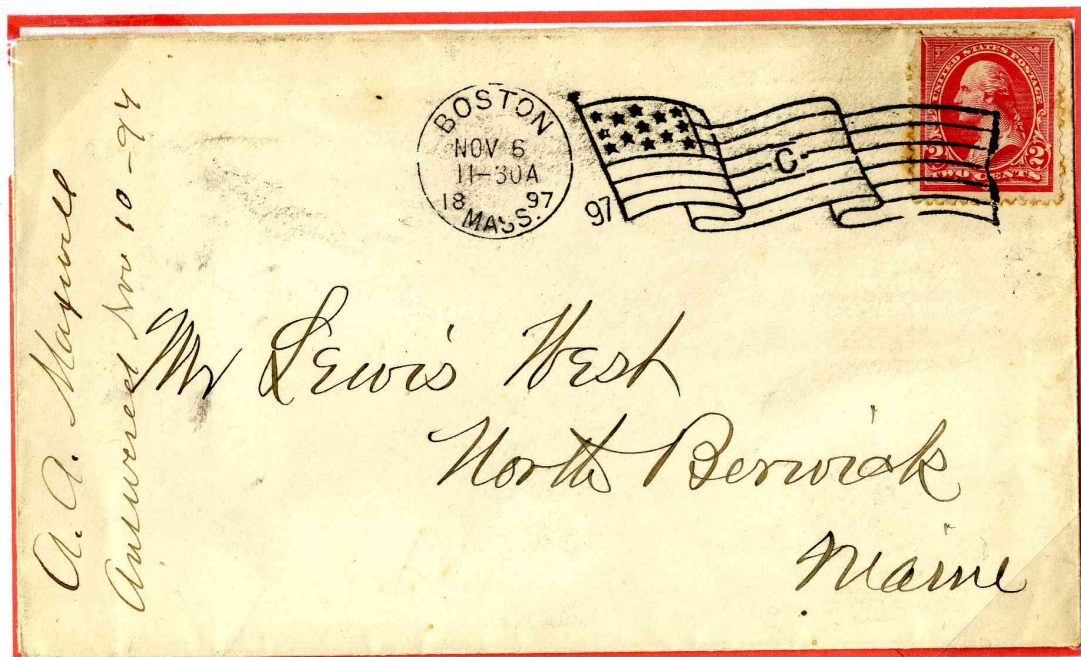 A. A. Maxwell
Answered Nov 10-97
BOSTON
NOV 6
11-30A
18 97
MASS.
97
C
UNITED STATES POSTAGE
2 2
TWO CENTS
Mr Lewis West
North Berwick
Maine